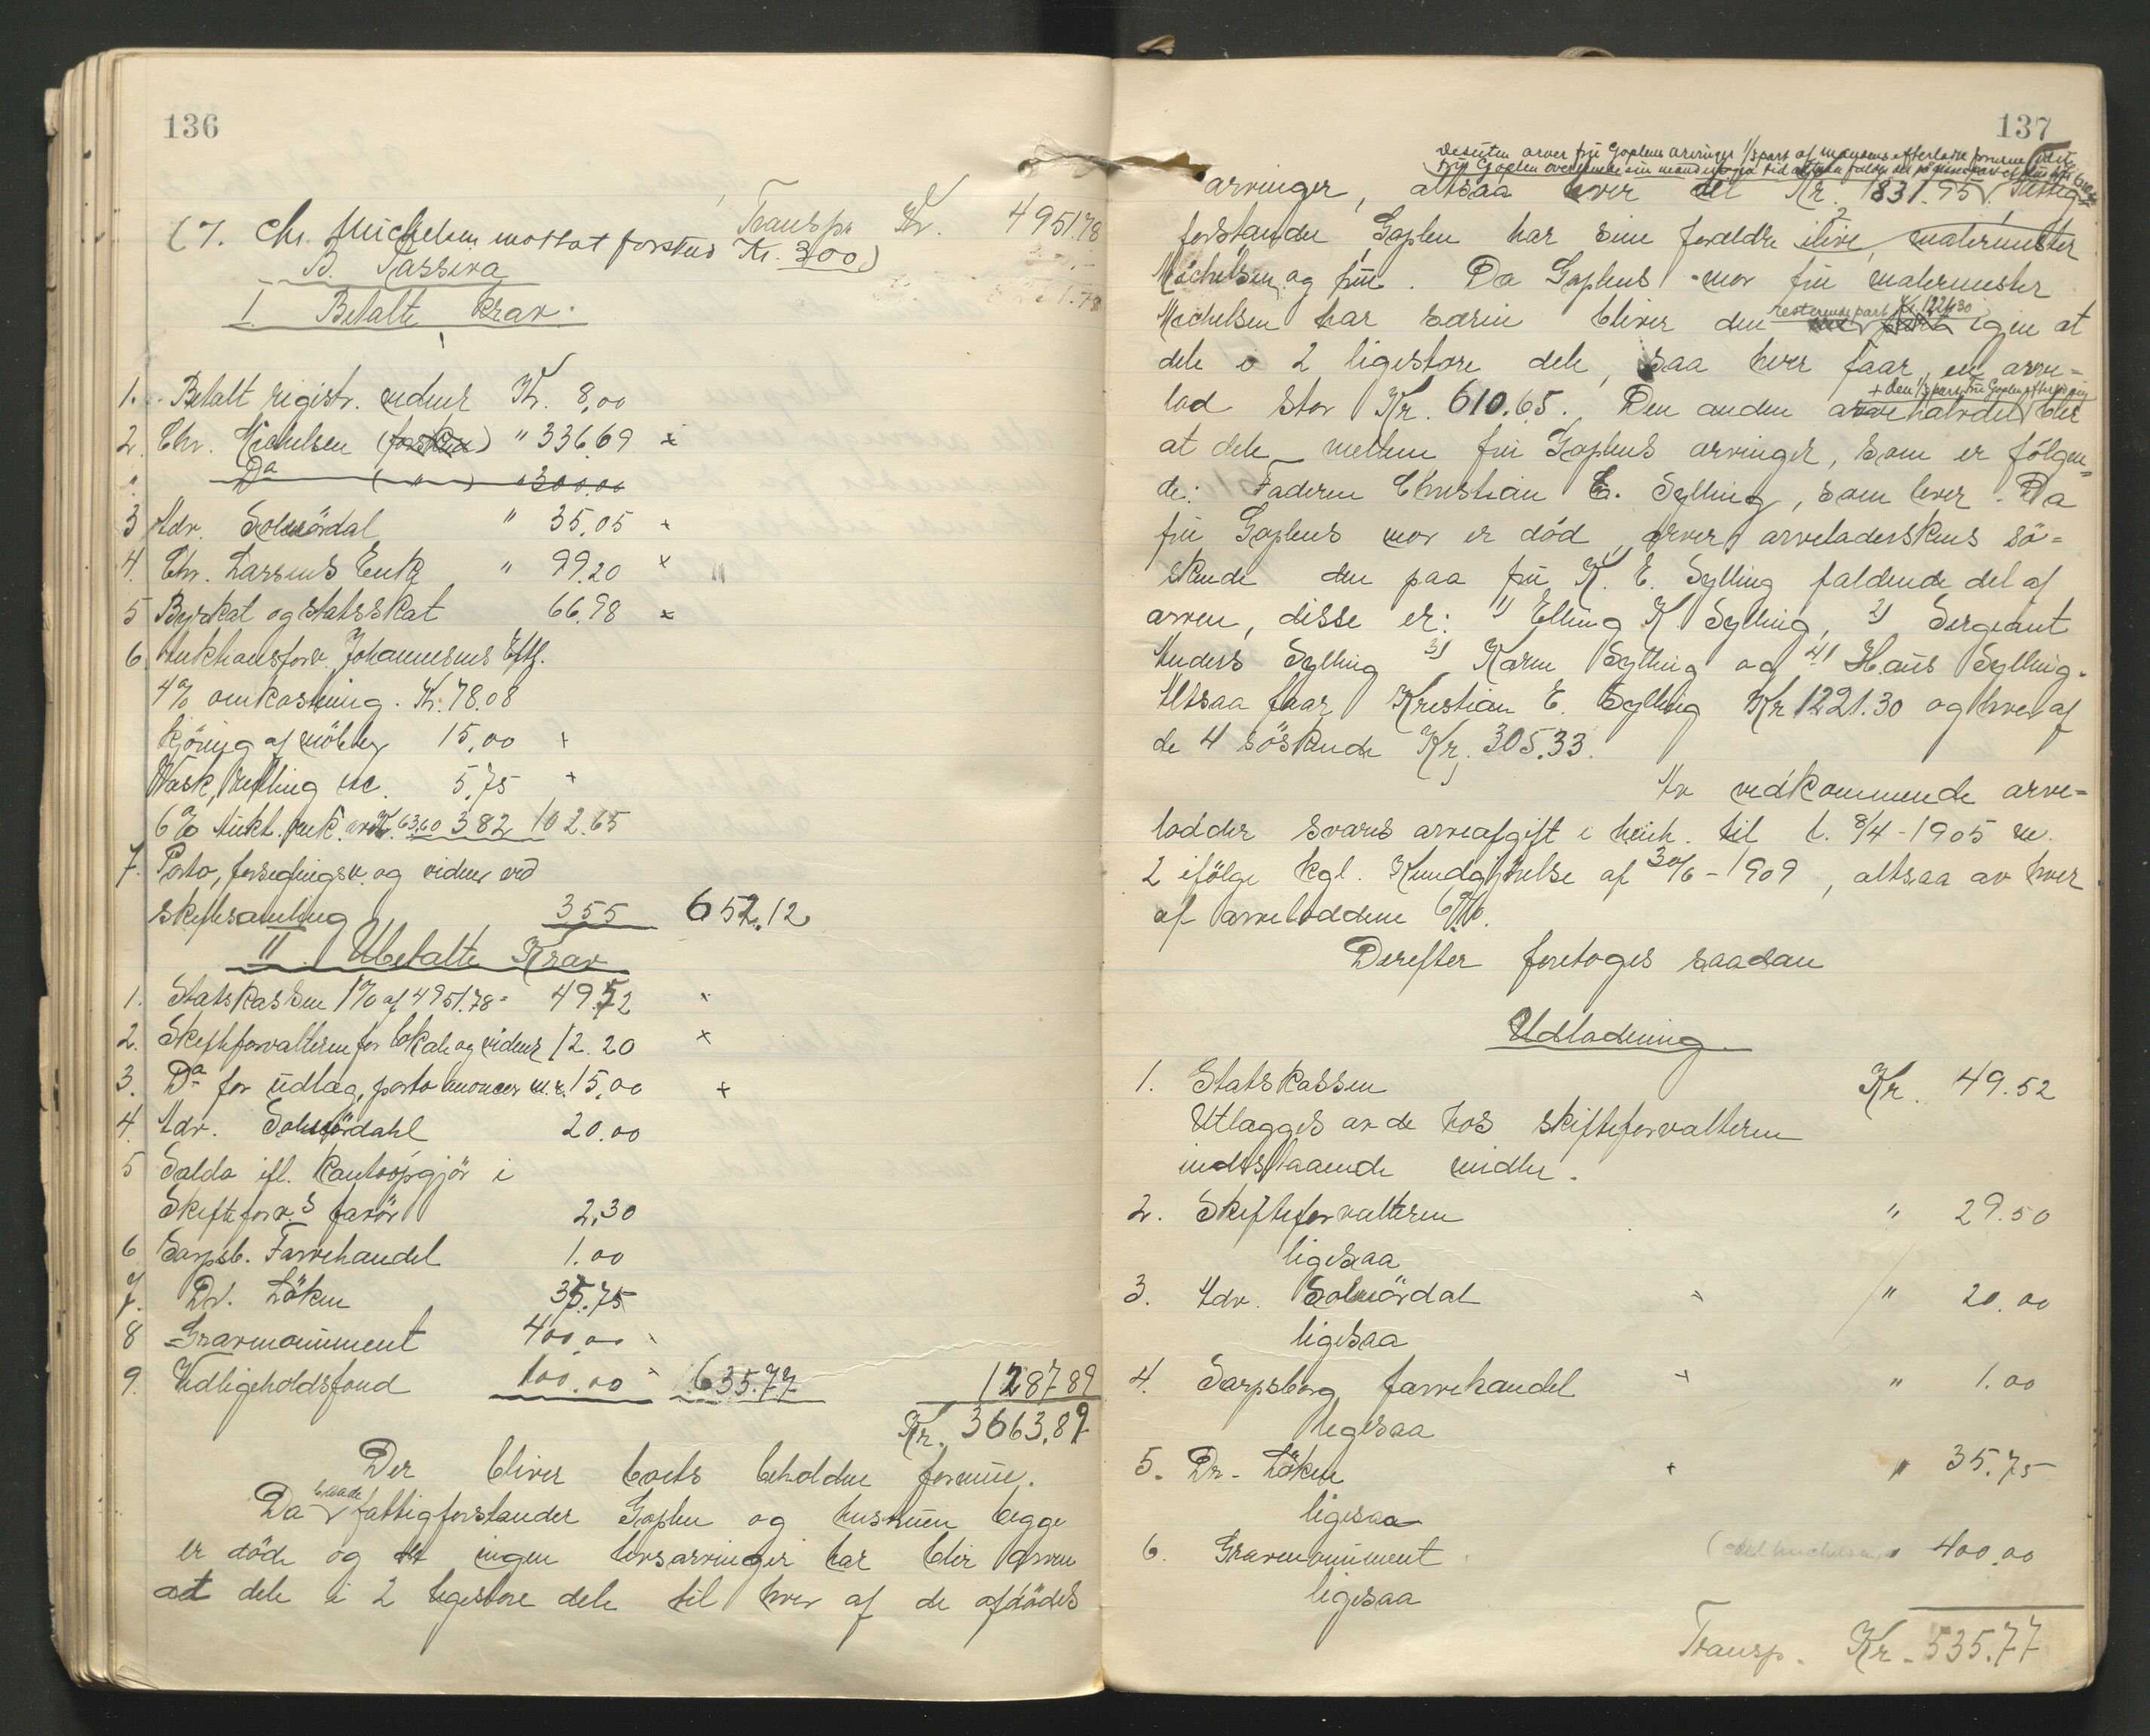 136
Transp. Kr. 4951.78
(7. Chr. Michelsen mottat forskud Kr. 300)
B. Passiva
I Betalte krav.
1. Betalt registr. vidner Kr. 8,00
2. Chr. Michelsen (forskud) " 336.69 x
" Do ( " ) " 300.00
3 Adv. Solnördal " 35.05 x
4. Chr. Larsens Enke " 99.20 x
5 Byskat og statsskat 66.98 x
6. Auktionsforv. Johannesens Eftf.
4% omkostning. Kr. 78.08
kjöring af möbler 15,00 x
Vask, etc. 5.75 x
6% Aukt. 63.60 382 102.65
7. Porto, forseglingsv. og vidner ved
skiftesamling 355 652.12
II Ubetalte Krav
1. Statskassen 1% af 4951.78 = 49.52 x
2. Skifteforvalteren for lokale og vidner 12.20 x
3. Do for udlæg, porto annoncer m.v. 15,00 x
4. Adv. Solnördahl 20.00
5 Saldo ifl. kontoopgjör i
Skifteforv.s favör 2,30
6 Sarpsb. Farvehandel 1.00
7. Dr. Löken 35.75
8 Gravmonument 400.00
9. Vedligeholdsfond 100.00 635.77 1287 89
Kr. 3663.89
Der bliver boets beholdne formue.
Da baade fattigforstander Goplen og hustruen begge
er döde og ingen livsarvinger har blir arven
at dele i 2 ligestore dele til hver af de afdödes
137
Desuten arver fru Goplens arvinger 1/3 part af mandens efterladte formue idet
fru Goplen overlevde sin mand
arvinger, altsaa hver del Kr. 1831.95. Fattig-
forstander Goplen har sine forældre ilive, malermester
Michelsen og frue. Da Goplens mor fru malermester
Michelsen har særeie bliver den resterende part Kr 1221.30 igjen at
dele i 2 ligestore dele, saa hver faar en arve-
lod stor Kr. 610.65. Den anden arvehalvdel blir
+ den 1/3 part fru Goplen
at dele mellem fru Goplens arvinger, som er fölgen-
de: Faderen Christian E. Sylling, som lever. Da
fru Goplens mor er död, arver arveladerskens sö-
skende den paa fru K. E. Sylling faldende del af
arven, disse er: 1) Elling K. Sylling, 2) Sergeant
Anders Sylling 3) Karen Sylling og 4) Hans Sylling.
Altsaa faar Kristian E. Sylling Kr 1221.30 og hver af
de 4 söskende Kr. 305.33.
Av vedkommende arve-
lodder svares arveafgift i henh. til l. 8/4-1905 m.
2 ifölge kgl. Kundgjörelse af 30/6-1909, altsaa av hver
af arveloddene 6%.
Derefter foretoges saadan
Udlodning
1. Statskassen Kr. 49.52
Utlægges av de hos skifteforvalteren
indestaaende midler.
2. Skifteforvalteren " 29.50
ligesaa
3. Adv. Solnördal " 20.00
ligesaa
4. Sarpsborg farvehandel " 1.00
ligesaa
5. Dr. Löken " 35.75
ligesaa
6. Gravmonument " 400.00
ligesaa
Transp. Kr. 535.77